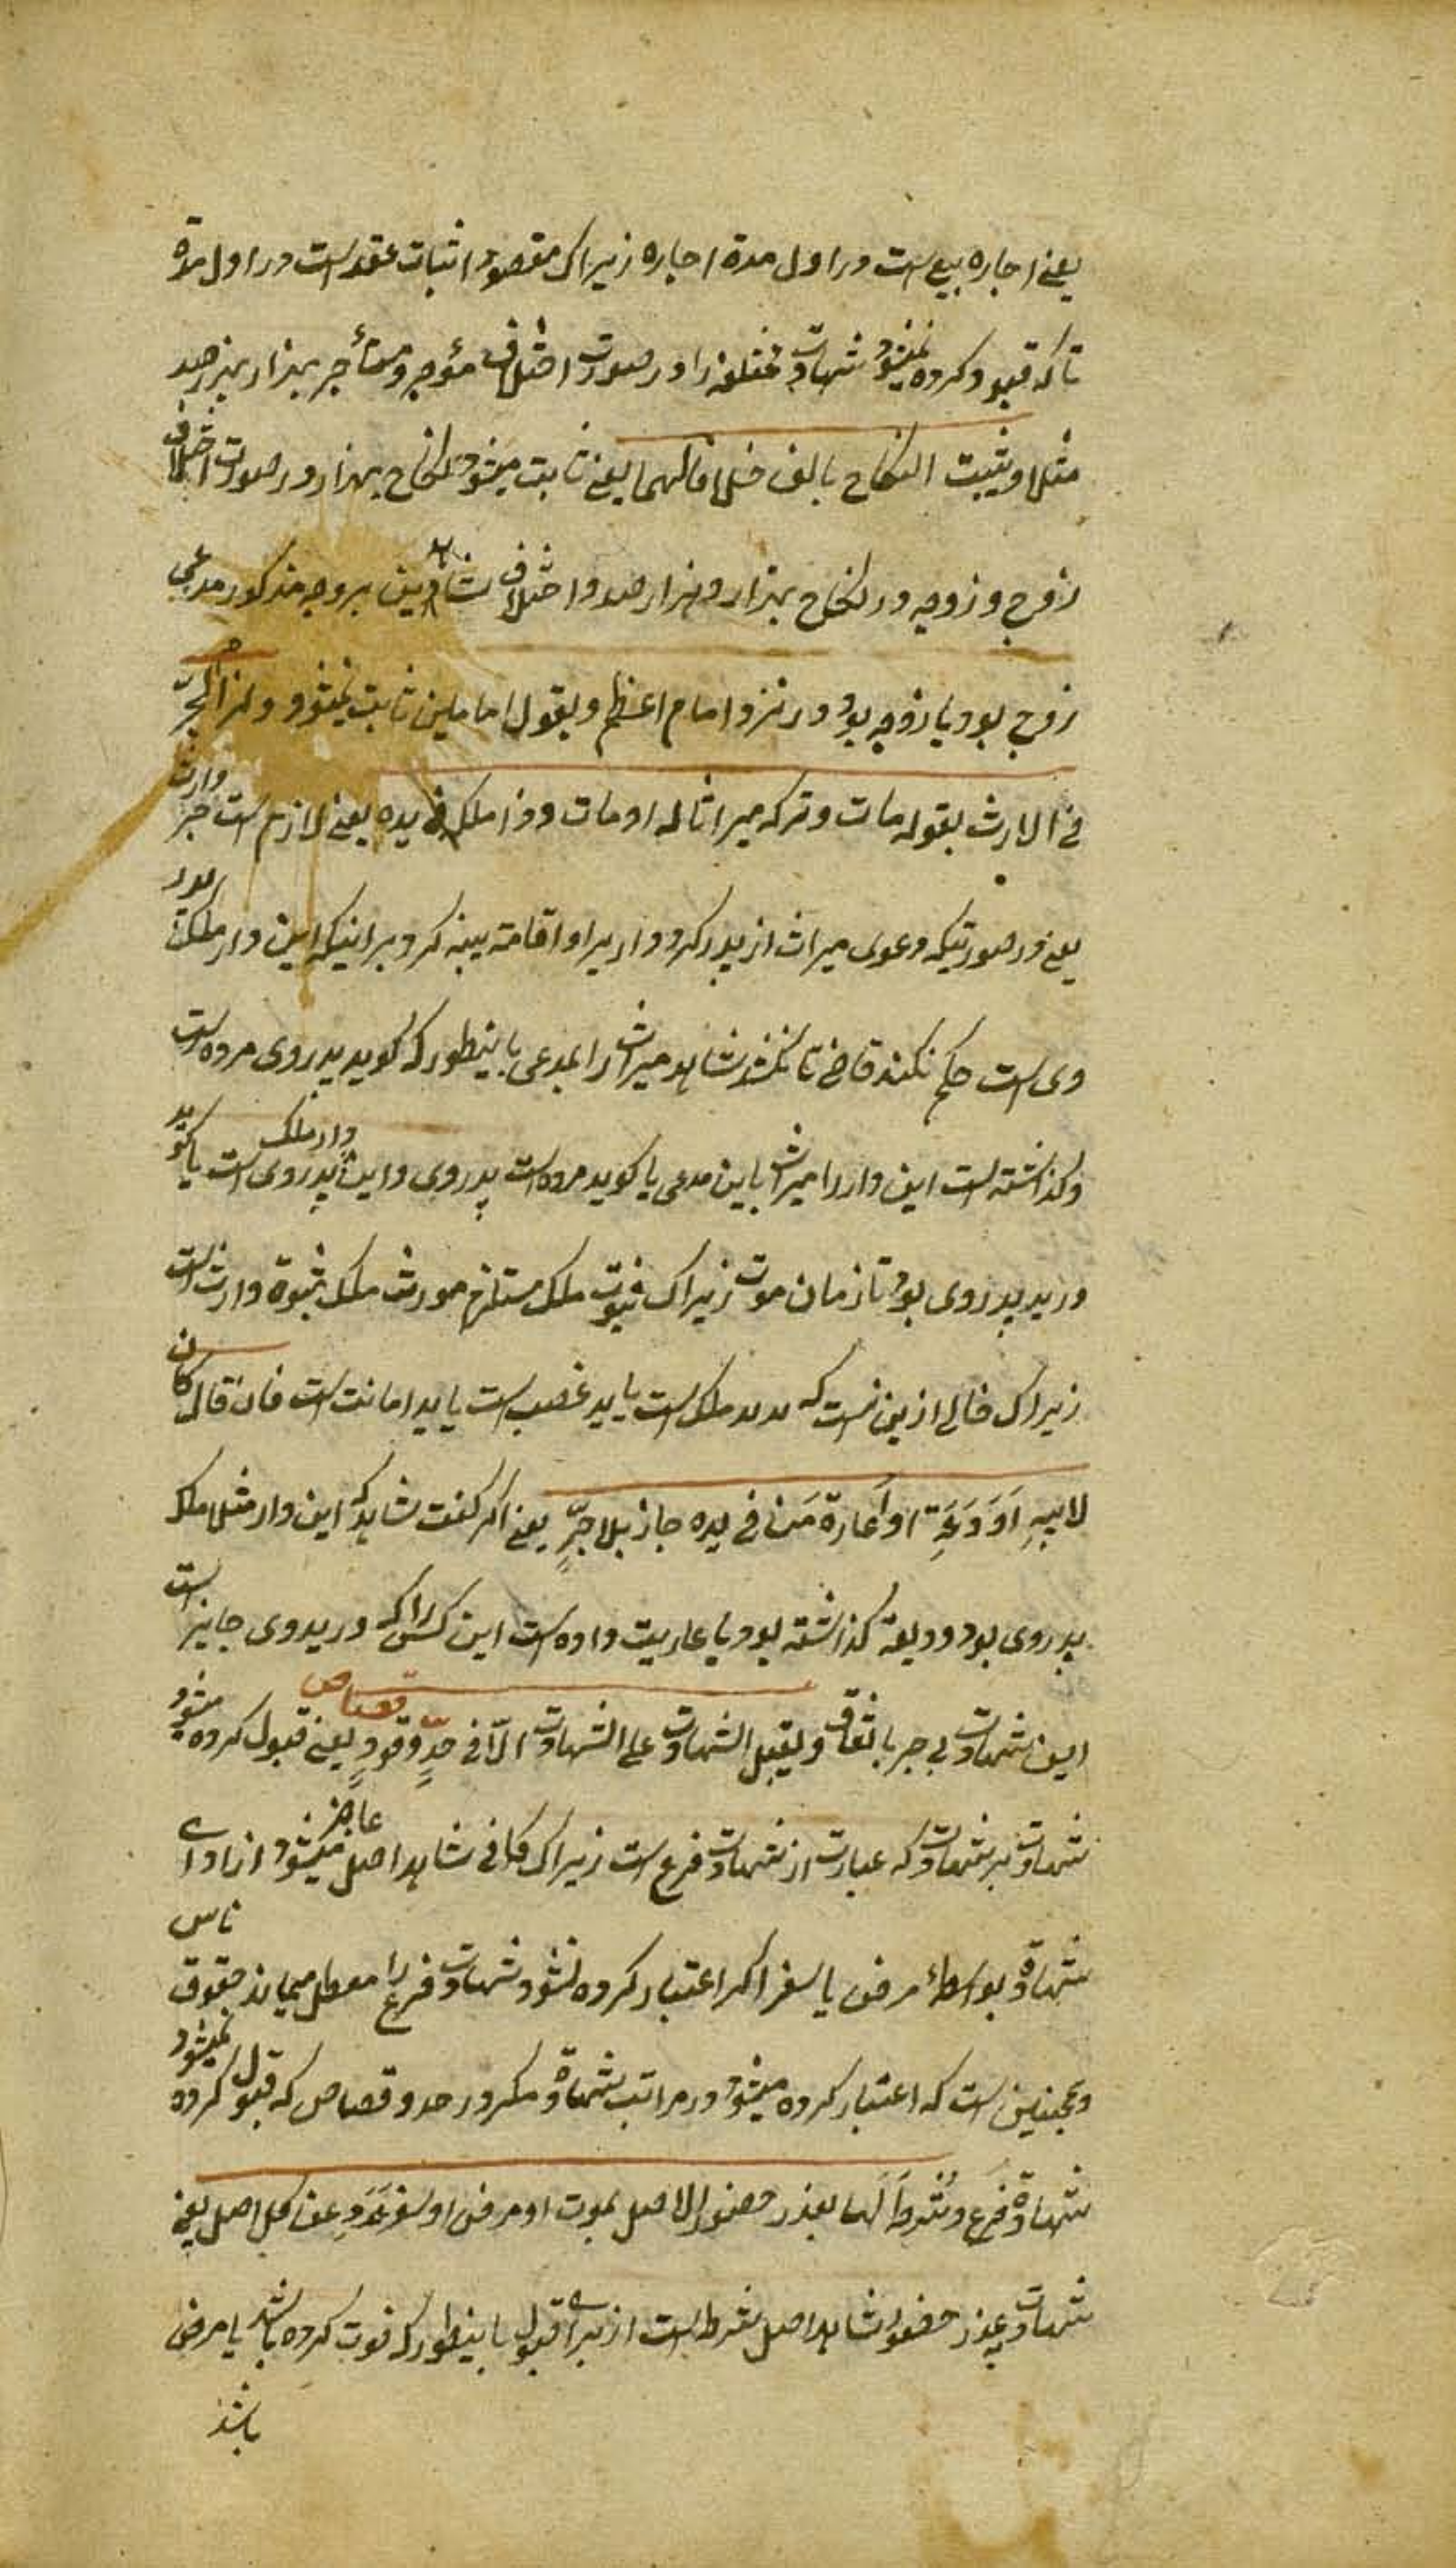 یعنی اجاره بیع است در اول مدة اجاره زیراک مقصود اثبات عقد است در اول مدة
تا که قبود کرده نمیشود شهادت مختلفه را در صورت اختلاف مؤجر و مستأجر بهزار بهزارصد
مثلا ویثبت النکاح بالف خلافا لهما یعنی ثابت میشود نکاح بهزار در صورت اختلاف
زوج و زوجه در نکاح بهزار و هزارصد و اختلاف شاهدین بر وجه مذکور مدعی
زوج بود یا زوجه بود در نزد امام اعظم و بقول امامین ثابت نمیشود ولزم الجرّ
فی الارث بقوله مات وترکه میراثا له او مات وذا ملکه فی یده یعنی لازم است جر وارث
یعنی در صورتیکه دعوی میراث از پدر کرد و ار یرا و اقامة بینه کرد بر اینکه این وار ملک پدر
وی است حکم نکند قاضی تا نکشد شاهد میراث را بمدعی باینطور که کوید پدر وی مرده است
وکذاشته است این وار را میراث باین مدعی یا کوید مرده است پدر وی و این وار ملک پدر وی است یا کوید
در ید پدر وی بود تا زمان موت زیراک ثبوت ملک مستلزم مورث ملک ثبوة وارث است
زیراک خالی ازین نیست که ید ید ملک است یا ید غصب است یا ید امانت است فان قال کان
لابیهِ اَوْدَعَهِ او اَعارة مَن فی یده جاز بلا جرٍّ یعنی اکر کفت شاهد که این وار مثلا ملک
پدر وی بود و ودیعة کذاشته بود یا عاریت داده است این کس را که در ید وی جایز است
این شهادت بی جر باتفاق ویقبل الشهادت علی الشهادت الّا فی حدٍّ وقودٍ قصاص یعنی قبول کرده میشود
شهادت بر شهادت که عبارت از شهادت فرع است زیراک کافی شاهد اصل عاجز میشود از ادای
شهادة بواسطهٔ مرض یا سفر اکر اعتبار کرده نشود شهادت فرع را معطل میماند حقوق ناس
وهمچنین است که اعتبار کرده میشود در مراتب شهادة مکر در حد و قصاص که قبول کرده نمیشود
شهادة فرع وشُرِطَ لَها بعذر حضور الاصل بموت او مرض او سفر وعَدَدِ عن کل اصل یعنی
شهادت بعذر حضور شاهد اصل شرط است از برای قبول باینطور که فوت کرده باشد یا مرض
باشد